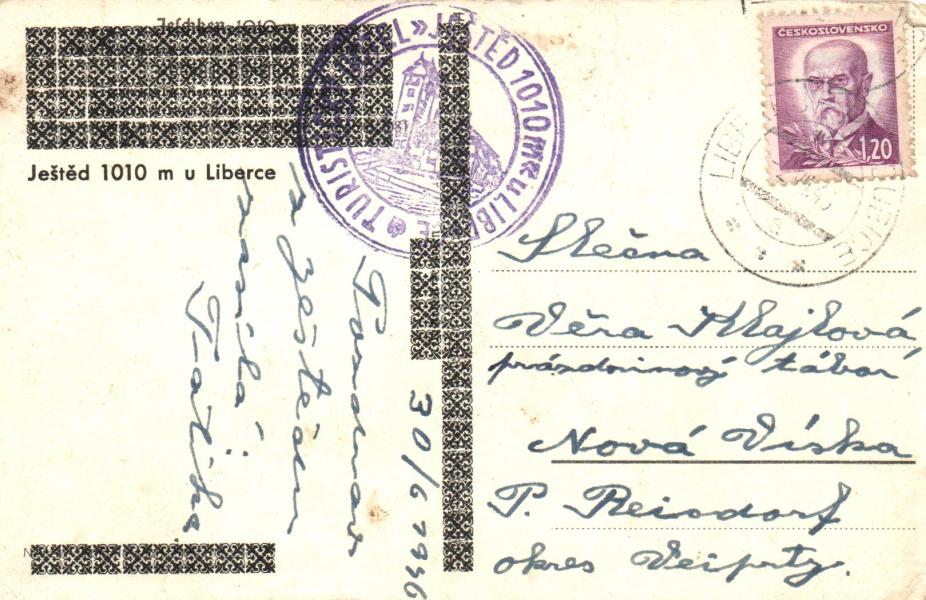 Jeschken 1010
Ještěd 1010 m u Liberce
TURISTICKÝ HOTEL » JEŠTĚD 1010 m « u LIBERCE
ČESKOSLOVENSKO
1,20
30/6 1946
Pozdrav
z Ještědu
zasílá
Taťka
Slečna
Věra Klajlová
prázdninový tábor
Nová Víska
P. Reisdorf
okres Veiprty.